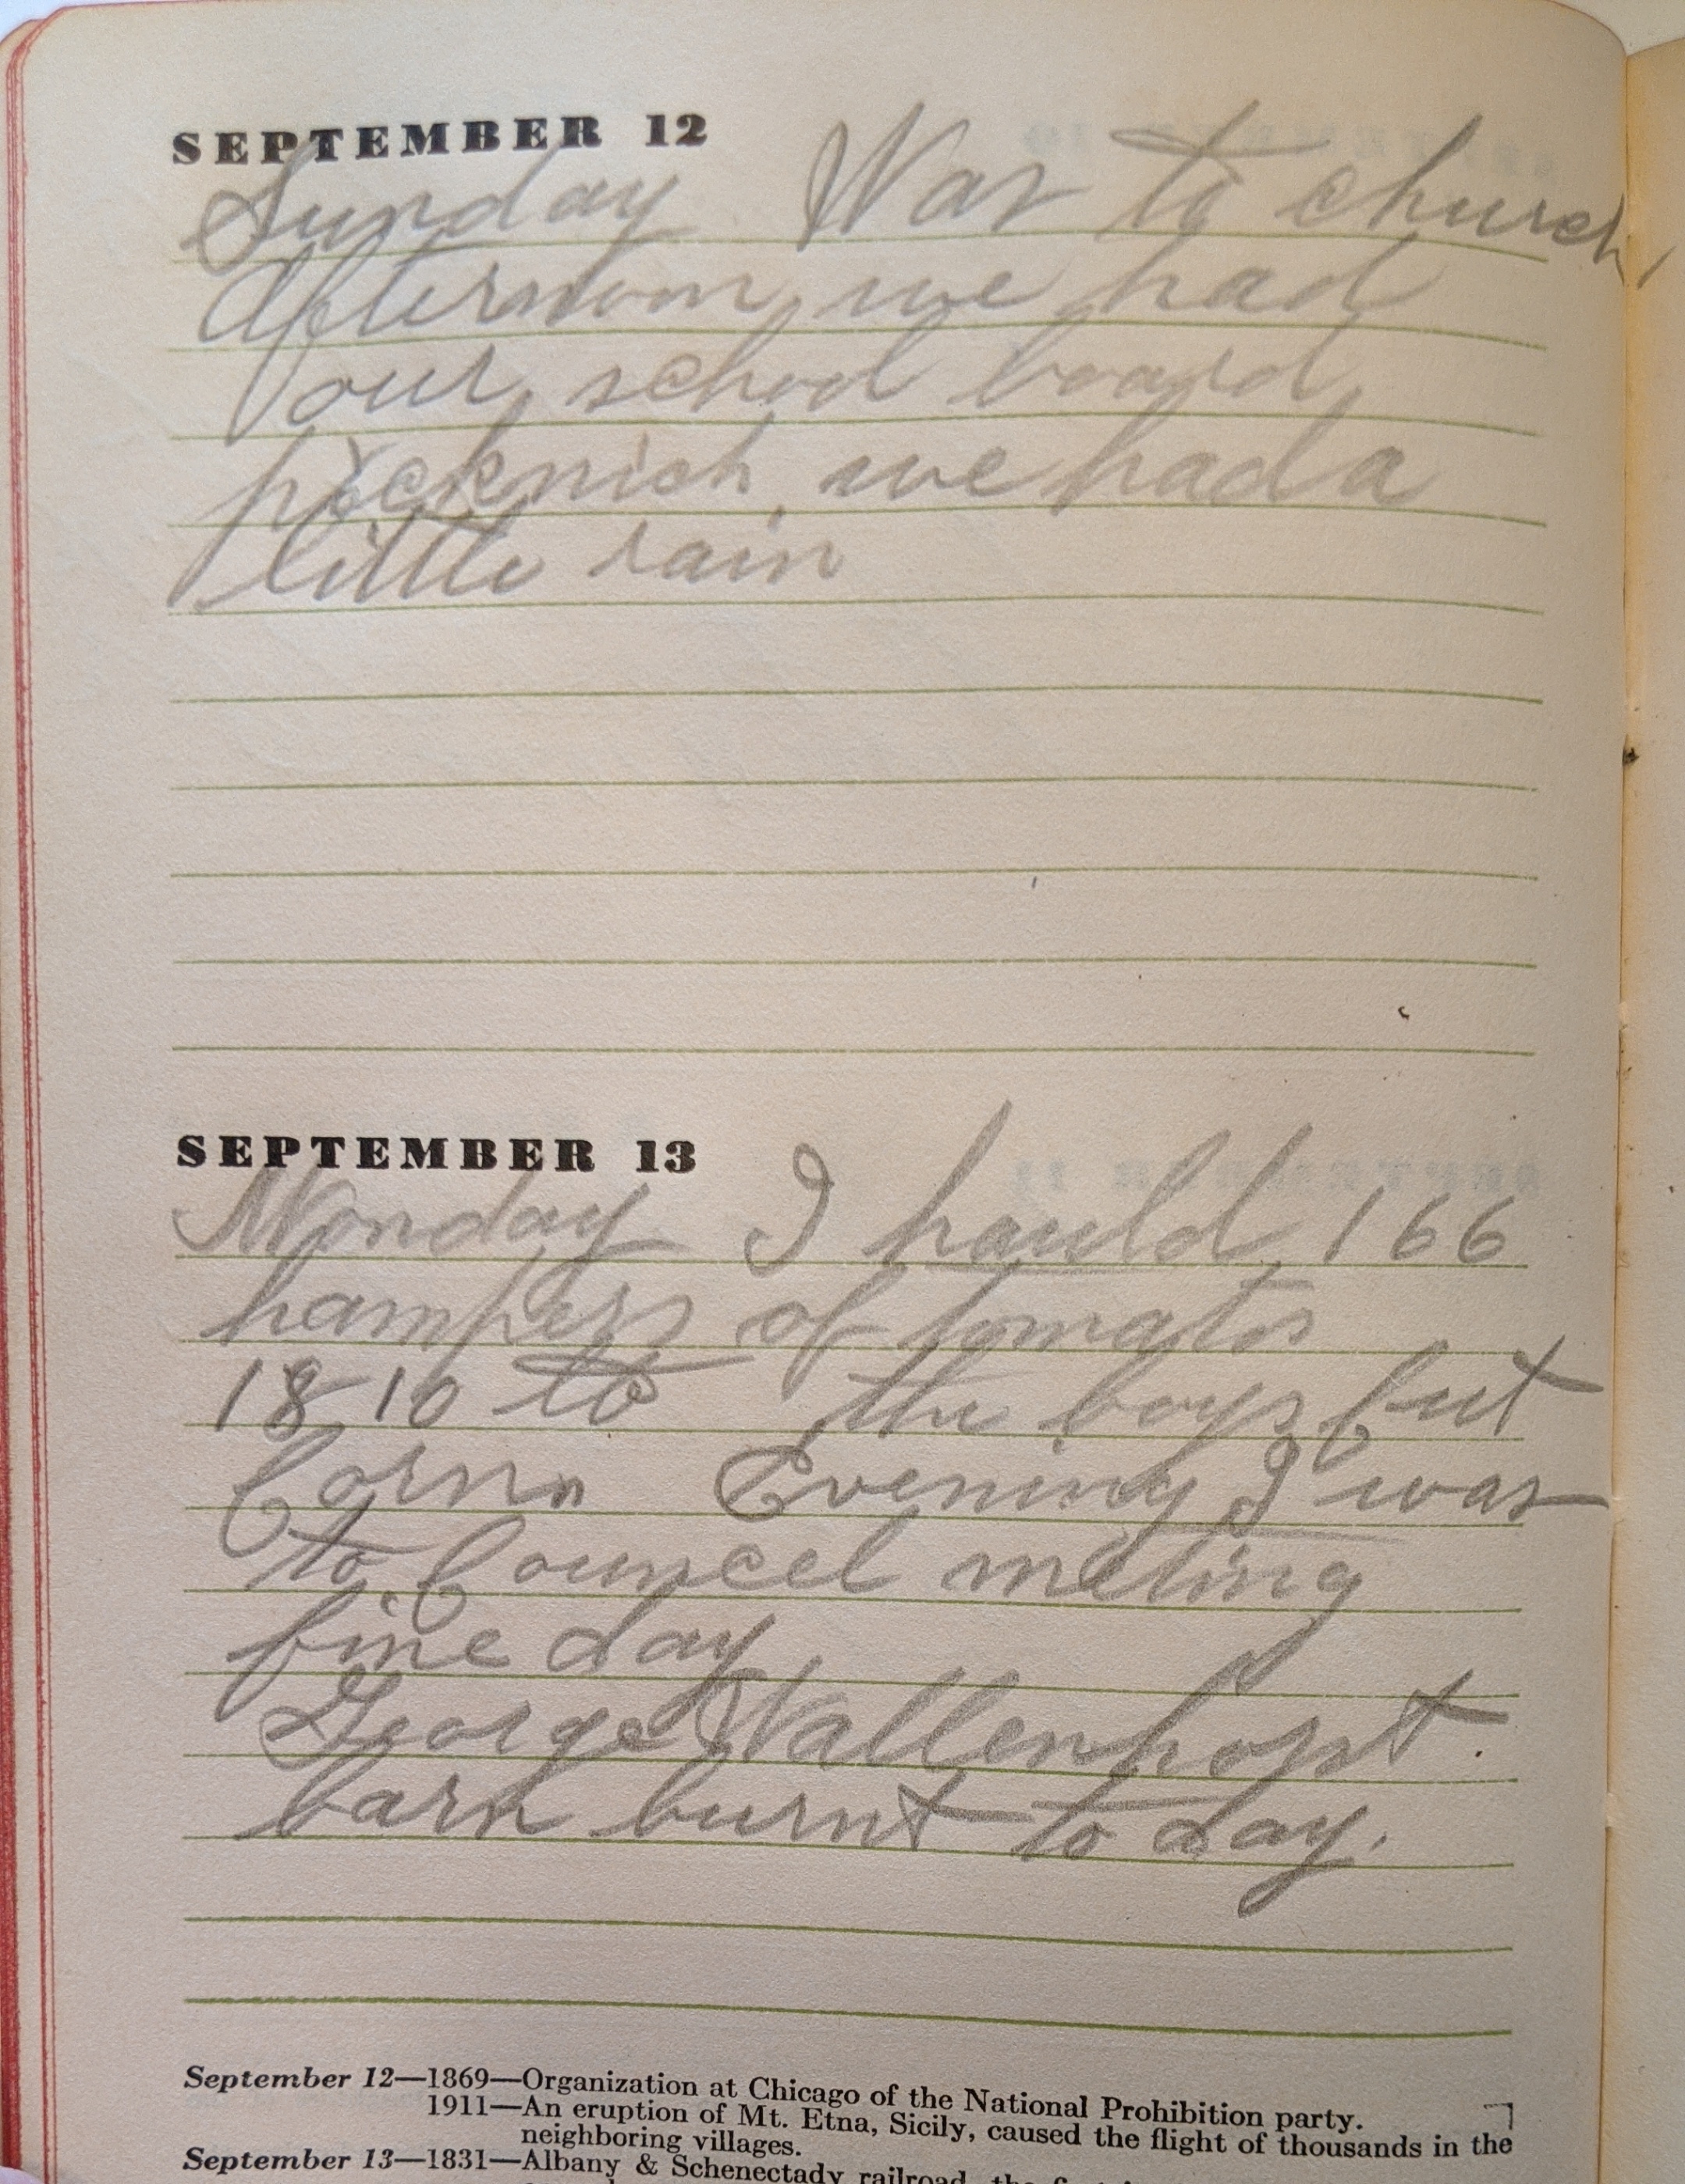 SEPTEMBER 12
Sunday Was to church,
Afternoon we had
our school board
picknick we had a
little rain
SEPTEMBER 13
Monday I hauld 166
hampers of tomatos
1810 lb the boys cut
Corn Evening I was
to Councel meting
fine day
George Wallenhorst
barn burnt to day.
September 12—1869—Organization at Chicago of the National Prohibition party.
1911—An eruption of Mt. Etna, Sicily, caused the flight of thousands in the
neighboring villages.
September 13—1831—Albany & Schenectady railroad, the